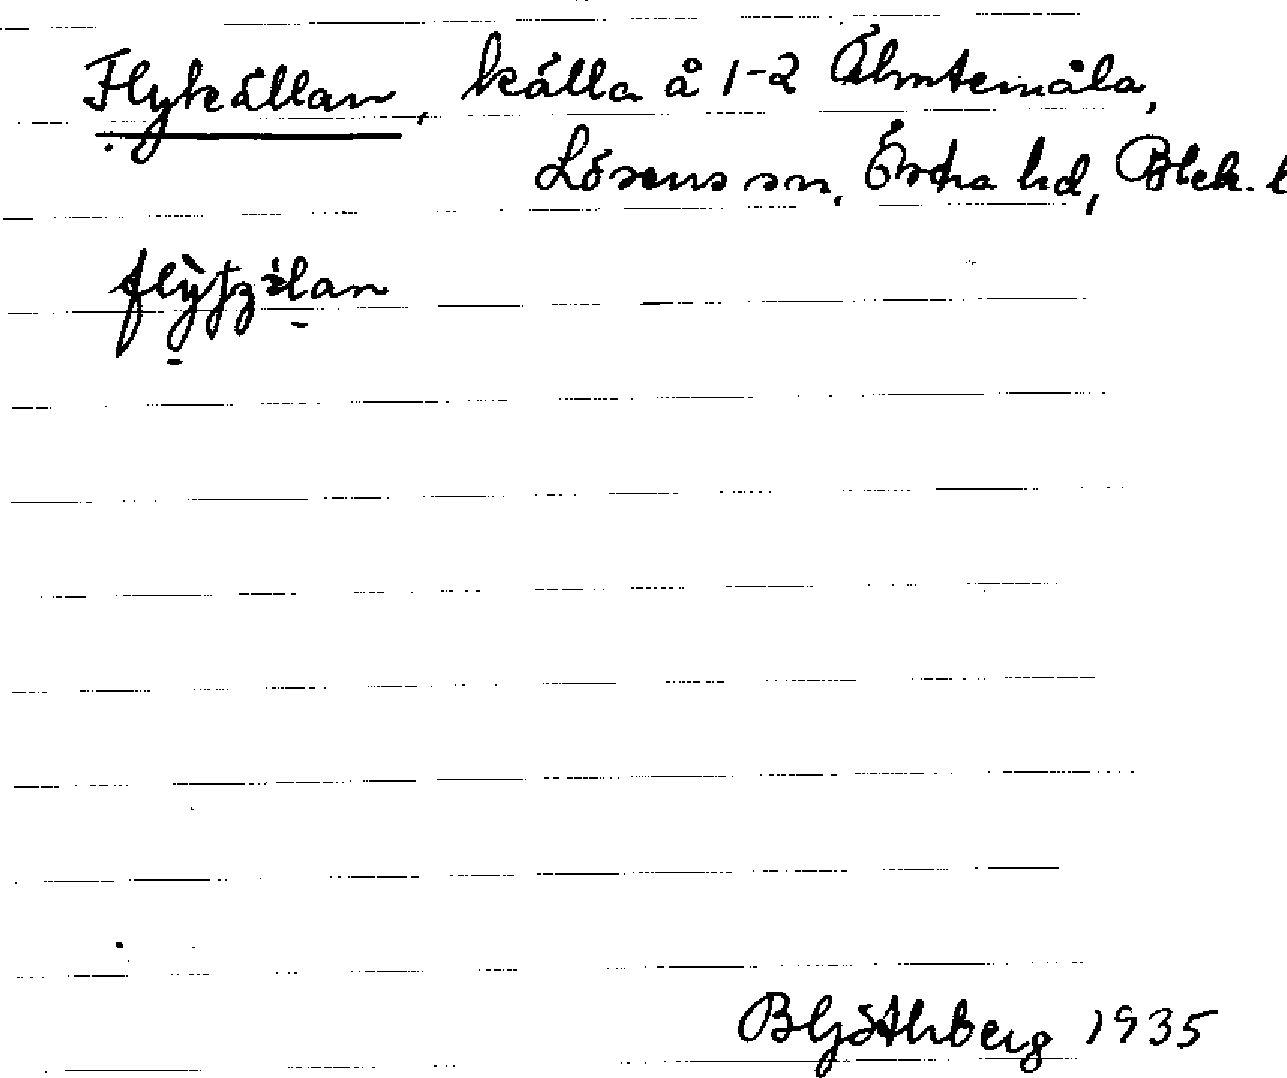 Flykällan, källa å 1-2 Älmtemåla,
Lösens sn, Östra hd, Blek. l
Bl Göthberg 1935